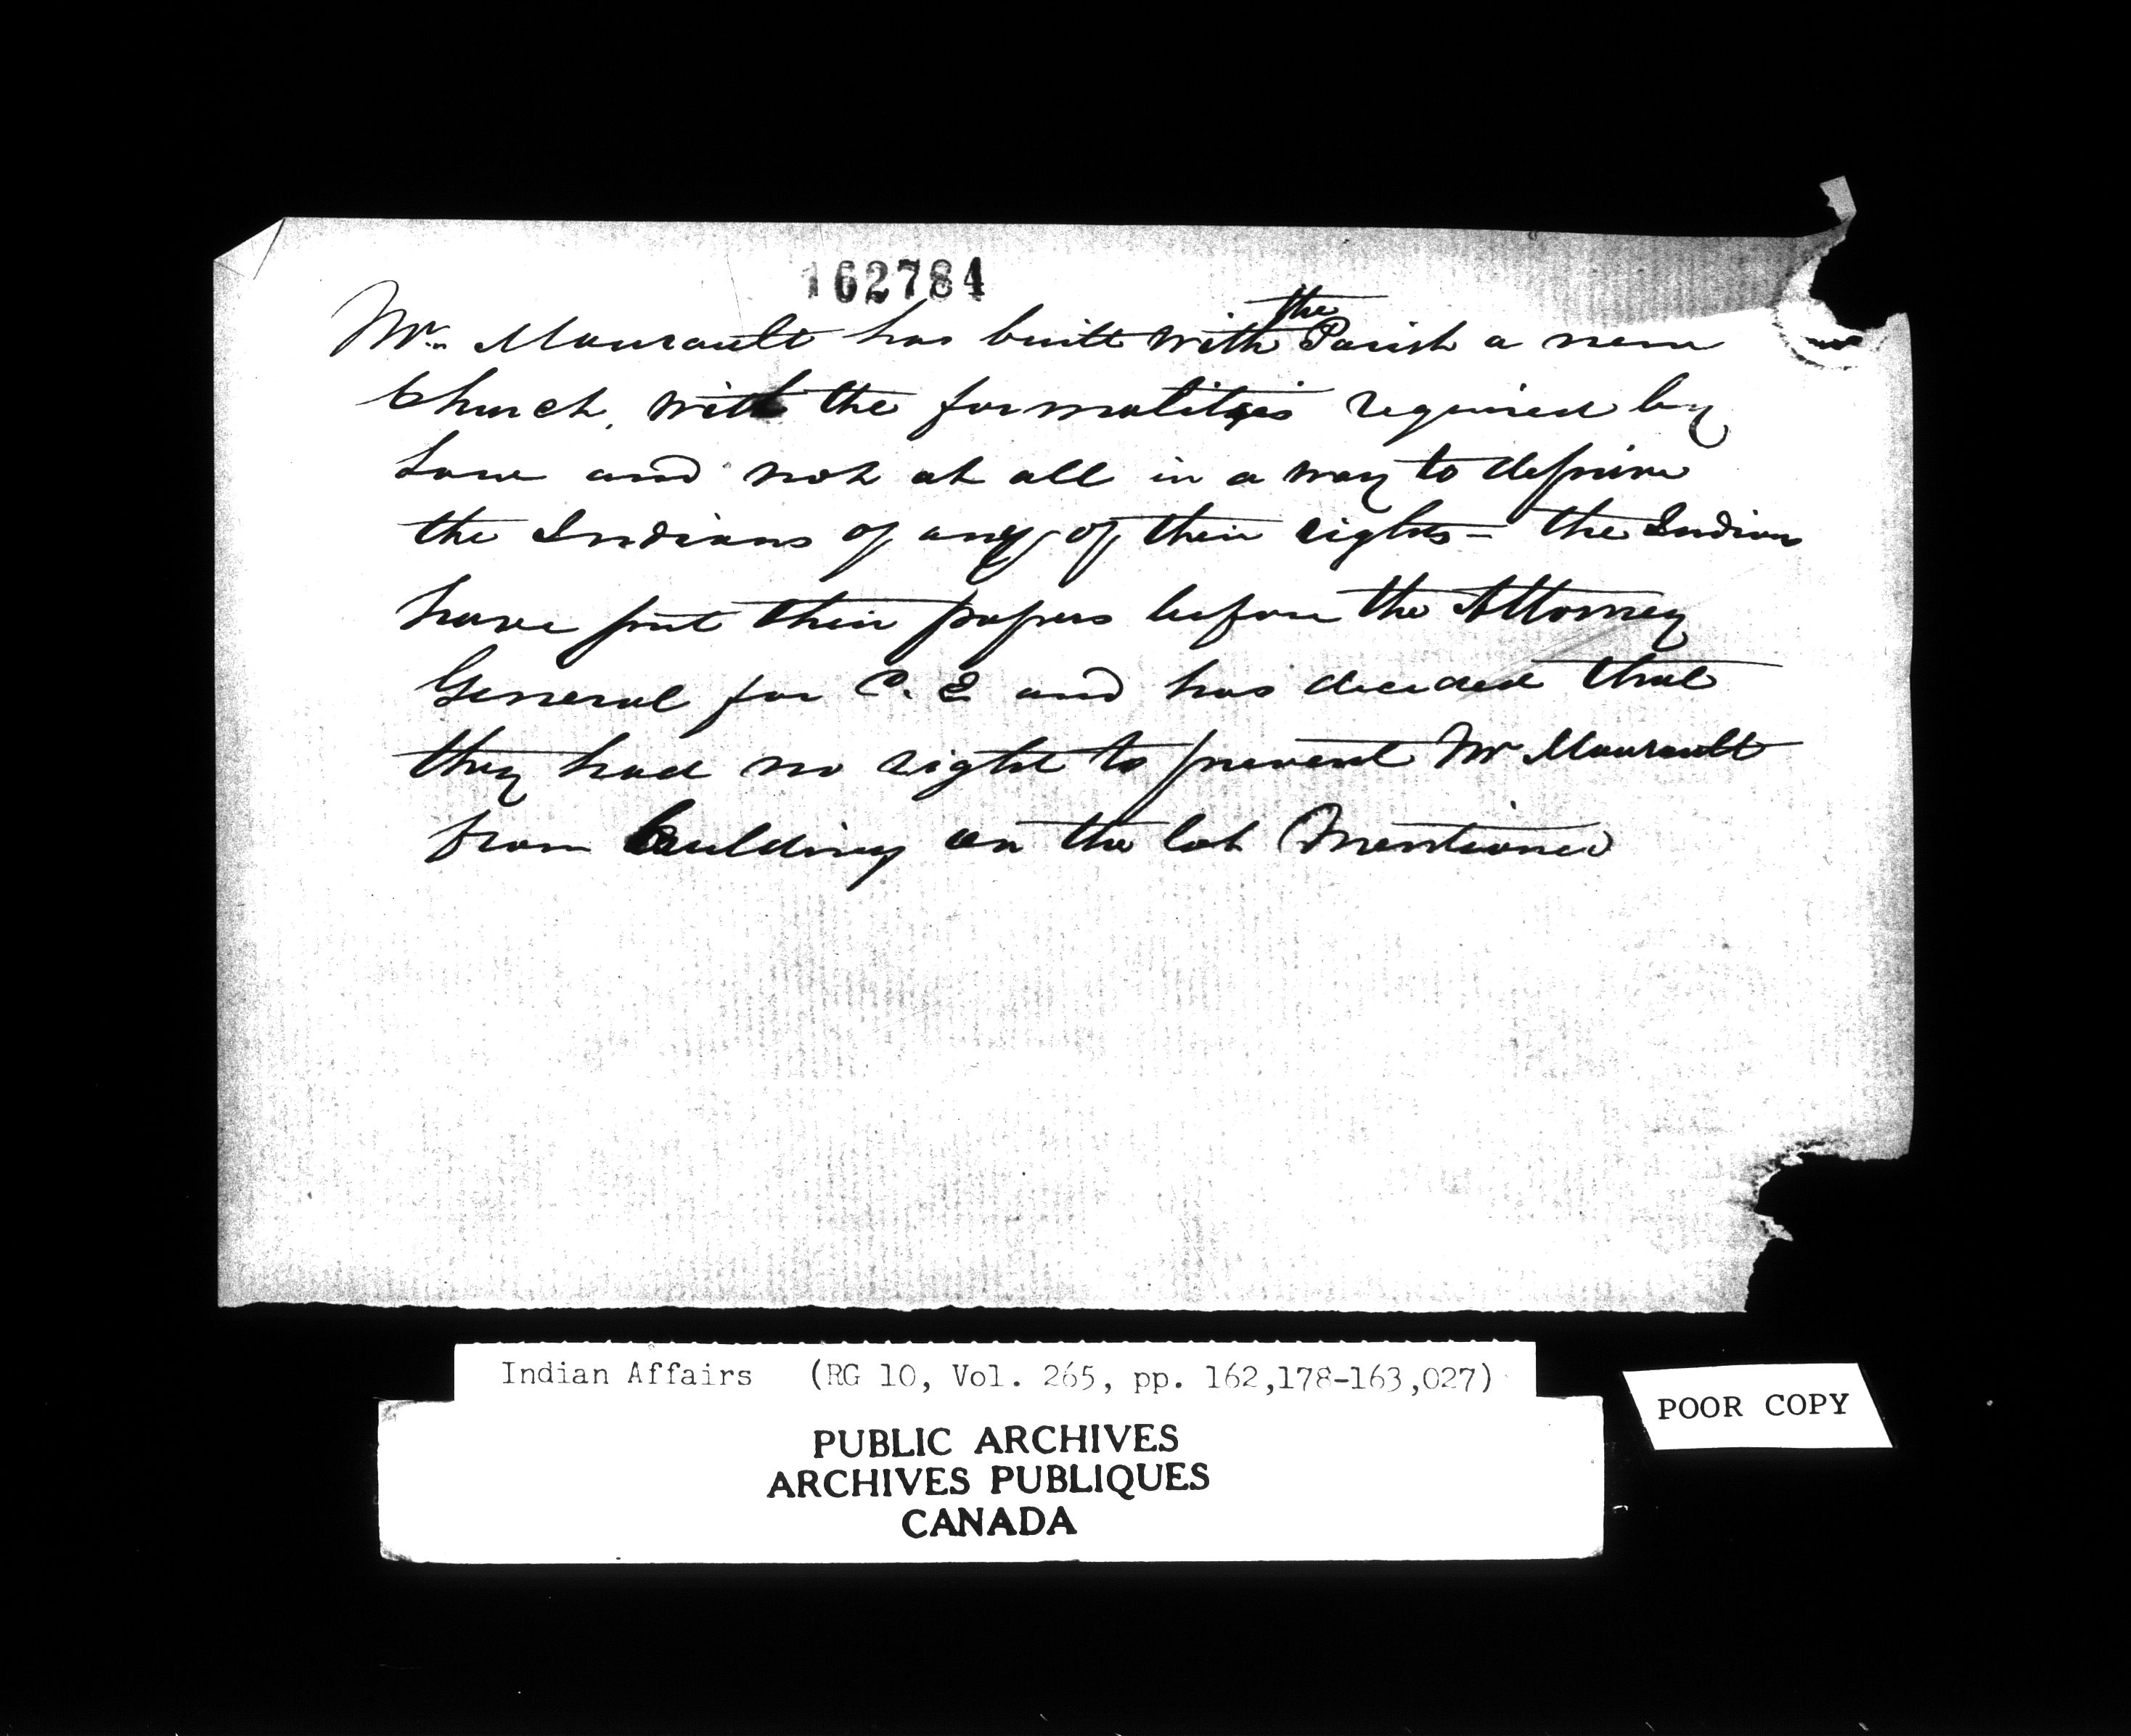 162784
Mr. Maurault has built with the Parish a new
Church, with the formalities required by
Law and not at all in a way to deprive
the Indians of any of their rights - the Indians
have put their papers before the Attorney
General for C. E and has decided that
they had no right to prevent Mr Maurault
from building on the lot mentioned
Indian Affairs (RG 10, Vol. 265, pp. 162,178-163,027)
POOR COPY
PUBLIC ARCHIVES
ARCHIVES PUBLIQUES
CANADA